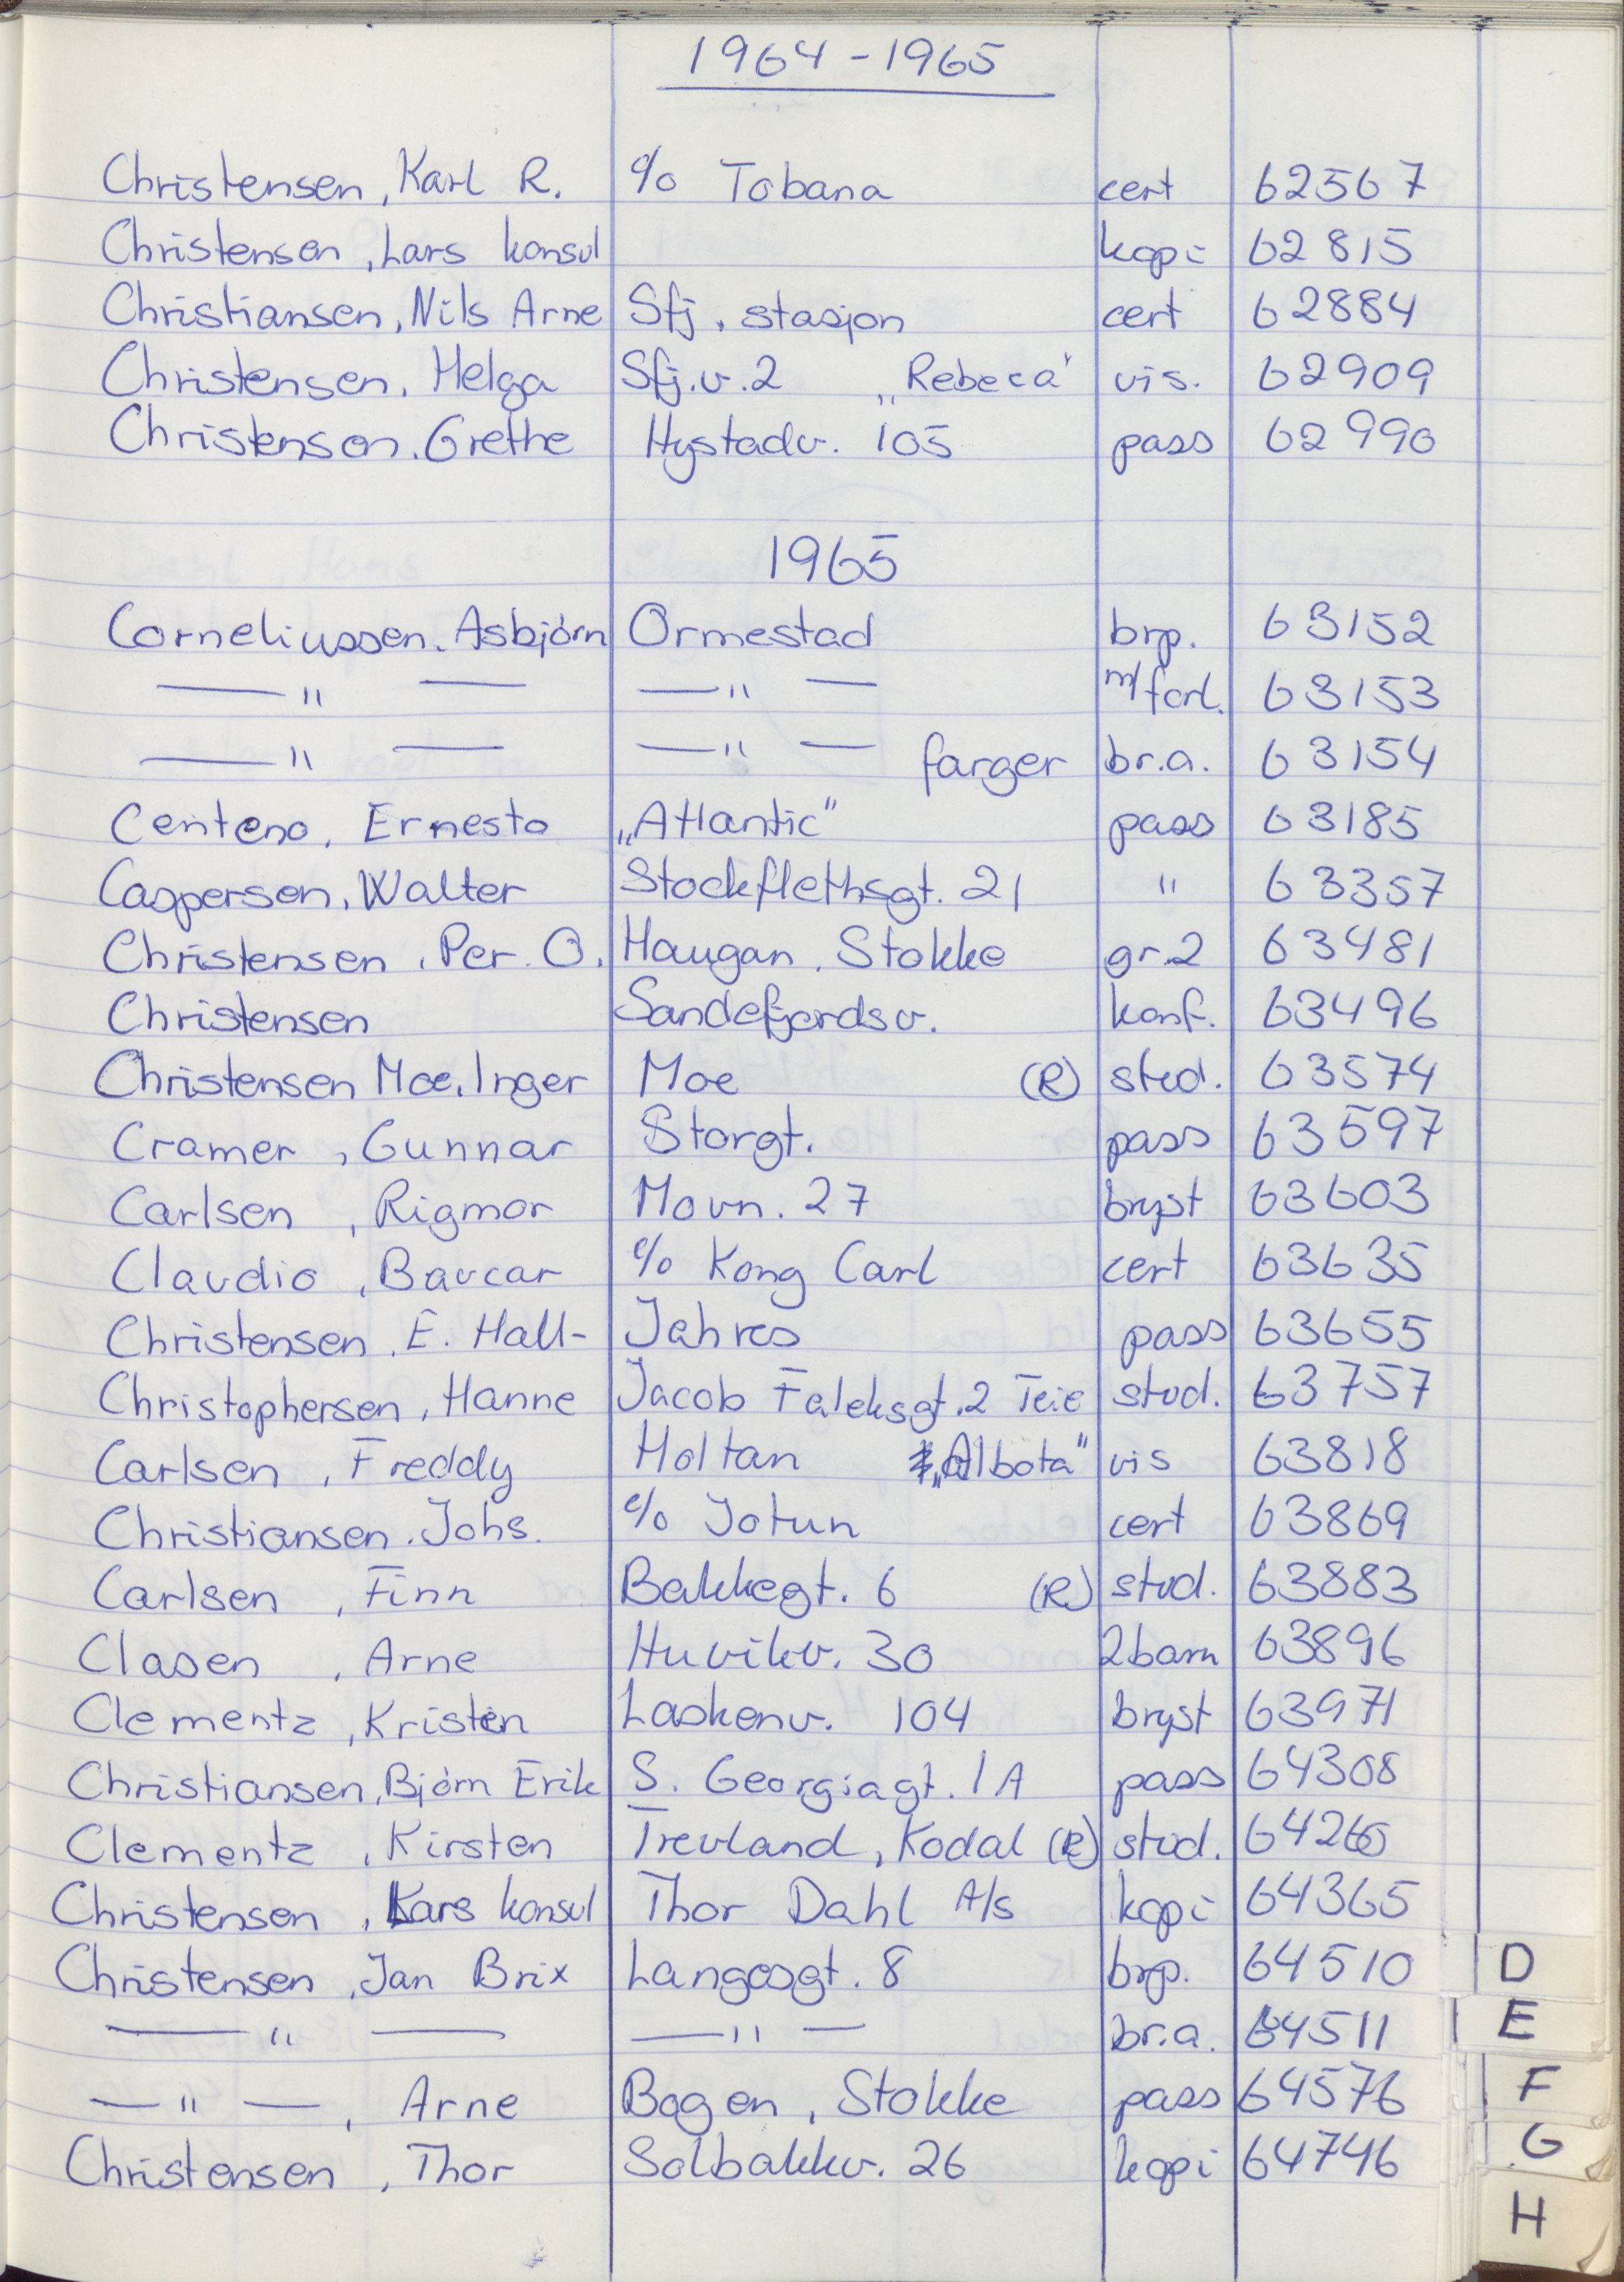 1964 - 1965
Christensen, Karl R. c/o Tobana cert 62567
Christensen, Lars konsul kopi 62815
Christiansen, Nils Arne Sfj. stasjon cert 62884
Christensen, Helga Sfj.v.2 „Rebeca" vis. 62909
Christensen, Grethe Hystadv. 105 pass 62990
1965
Corneliussen, Asbjørn Ormestad brp. 63152
— " — — " — m/forl. 63153
— " — — " — farger br.a. 63154
Centeno, Ernesto „Atlantic" pass 63185
Caspersen, Walter Stockflethsgt. 21 " 63357
Christensen, Per O. Haugan, Stokke gr.2 63481
Christensen Sandefjordsv. konf. 63496
Christensen Moe, Inger Moe (R) stud. 63574
Cramer, Gunnar Storgt. pass 63597
Carlsen, Rigmor Movn. 27 bryst 63603
Claudio, Baucar c/o Kong Carl cert 63635
Christensen, E. Hall- Jahres pass 63655
Christophersen, Hanne Jacob Falcksgt. 2 Teie stud. 63757
Carlsen, Freddy Holtan „Albota" vis 63818
Christiansen, Johs. c/o Jotun cert 63869
Carlsen, Finn Bakkegt. 6 (R) stud. 63883
Clasen, Arne Huvikv. 30 2barn 63896
Clementz, Kristin Laskenv. 104 bryst 63971
Christiansen, Bjørn Erik S. Georgiagt. 1A pass 64308
Clementz, Kirsten Trevland, Kodal (R) stud. 64265
Christensen, Lars konsul Thor Dahl A/s kopi 64365
Christensen, Jan Brix Langesgt. 8 brp. 64510 D
— " — — " — br.a. 64511 E
— " —, Arne Bogen, Stokke pass 64576 F
Christensen, Thor Solbakkv. 26 kopi 64746 G
H